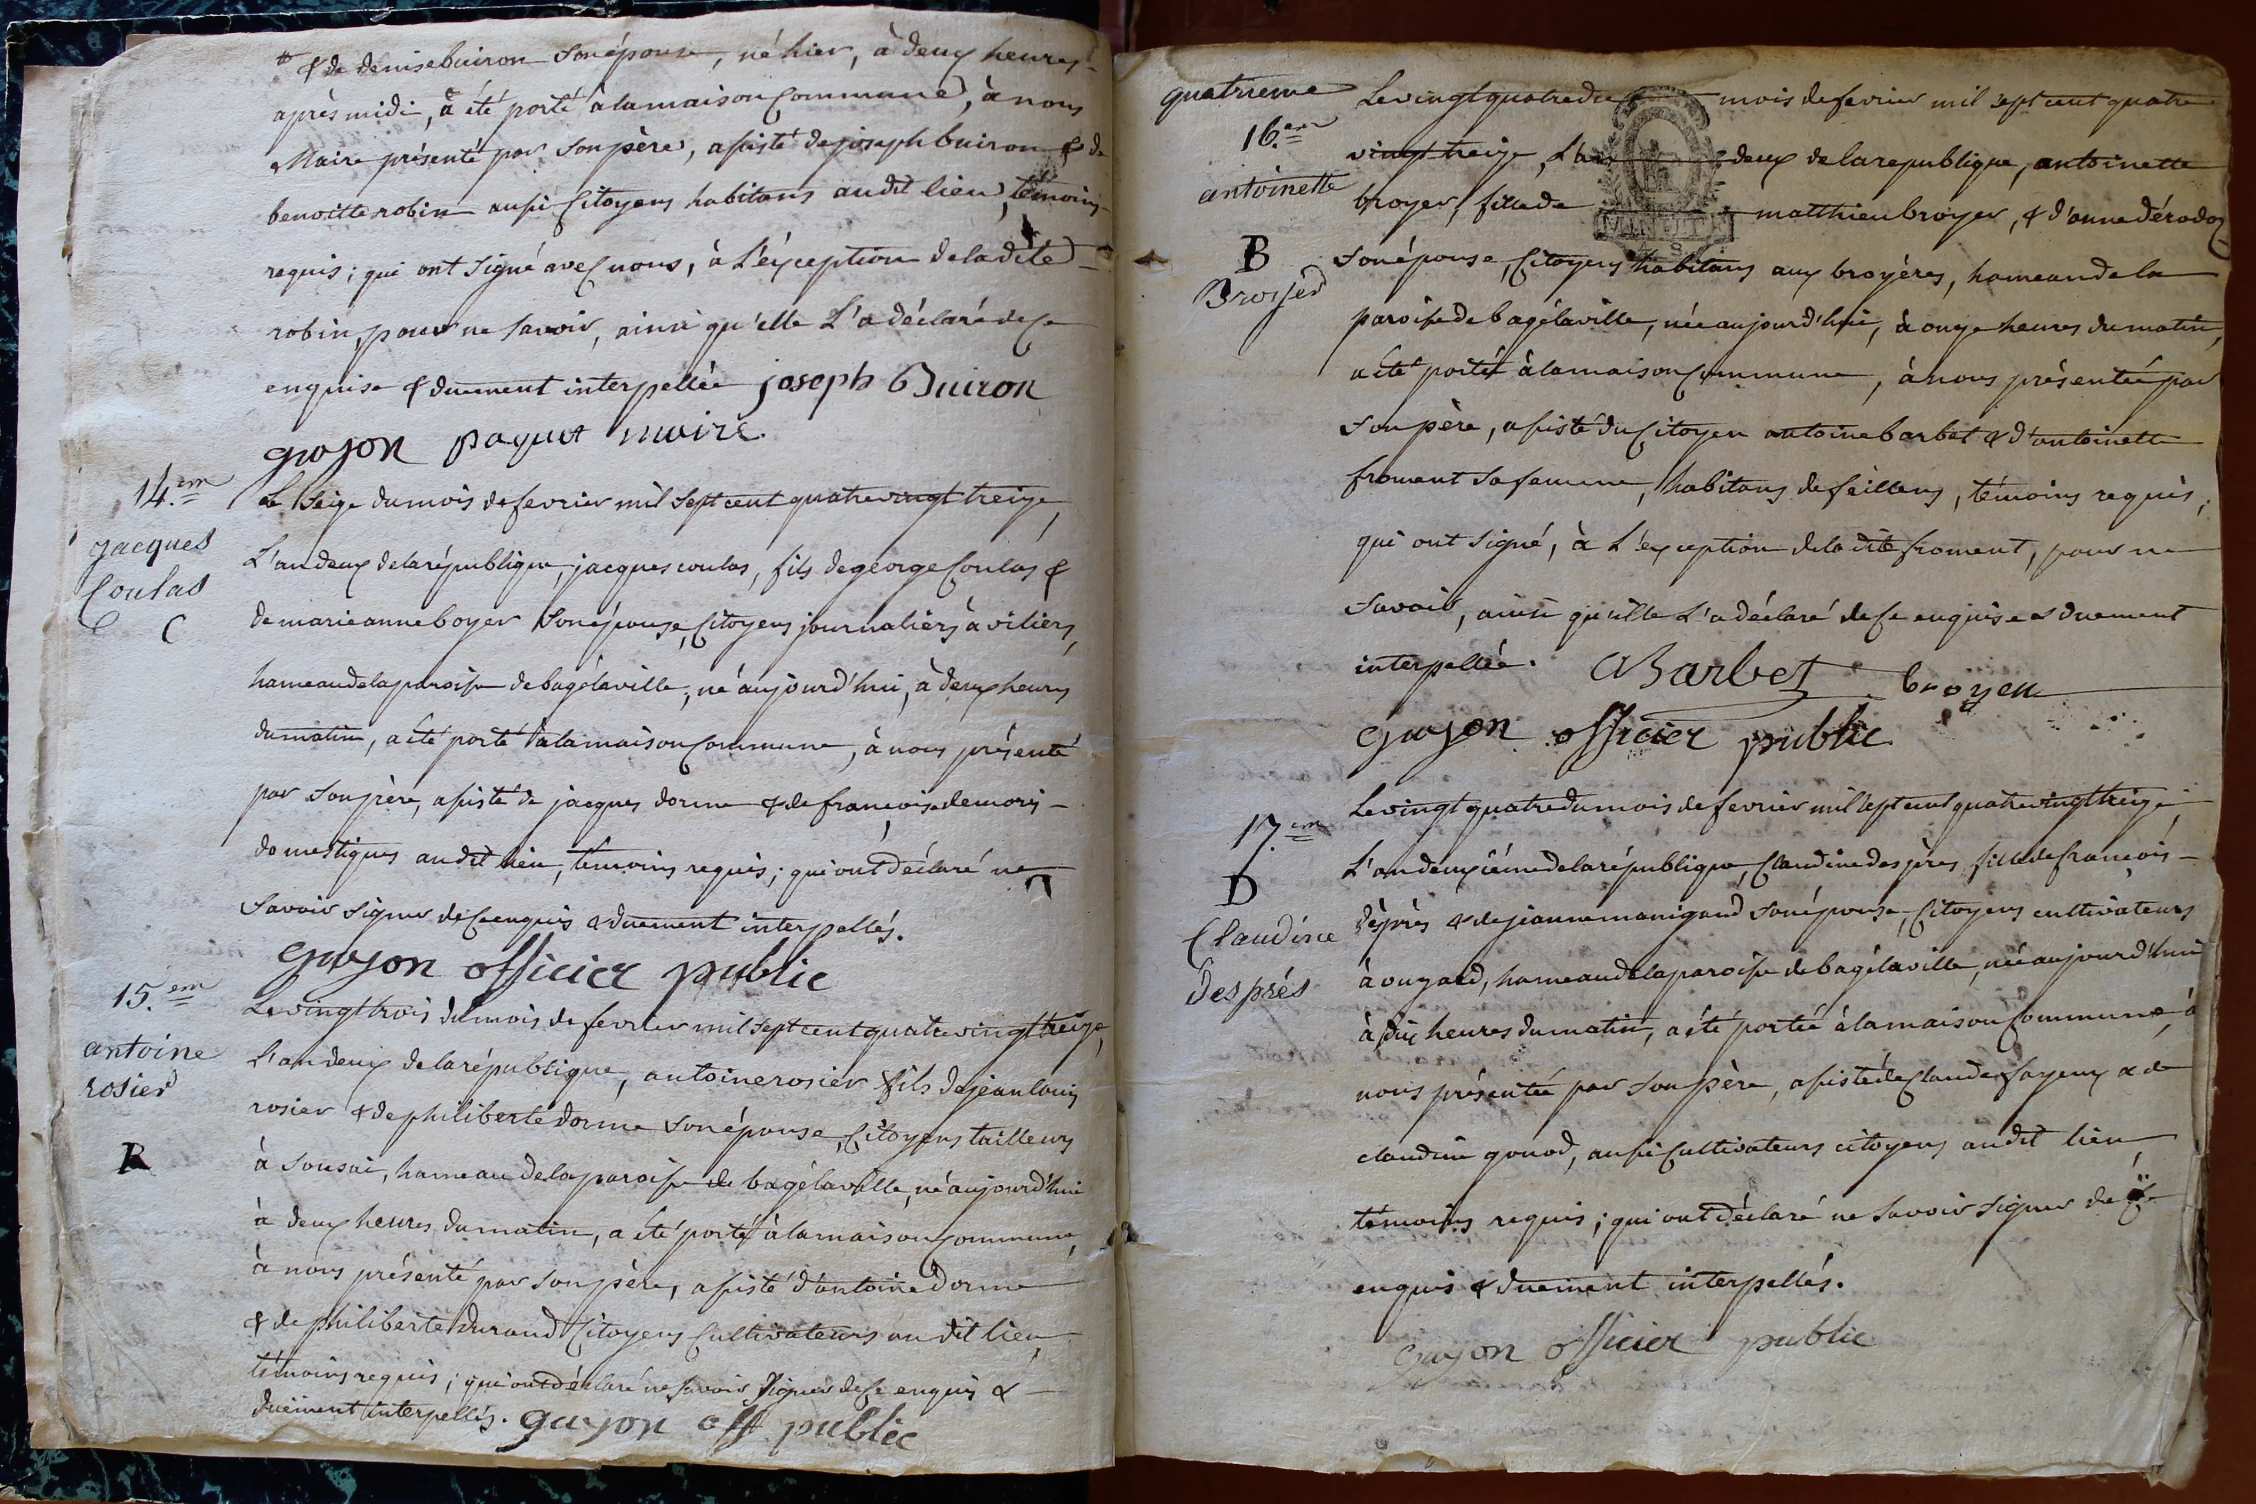 & de denise buiron son épouse, né hier, à deux heures
après midi, à été porté à la maison Commune, à nous
Maire présenté par son père, assisté de joseph buiron & de
benoitte robin aussi Citoyens habitans au dit lieu, témoins
requis ; qui ont signé avec nous, à L'éxception de la dite
robin, pour ne savoir, ainsi qu'elle L'a déclaré de ce
enquise & duement interpellée joseph Buiron
guyon paquet maire.
14.em
jacques
Coulas
C
Le seize du mois de fevrier mil sept cent quatre vingt treize,
L'an deux de la république, jacques coulas, fils de george Coulas &
de marie anne boyer son épouse, Citoyens journaliers à viliers,
hameau de la paroisse de bagélaville, né aujourd'hui, à deux heures
du matin, a été porté à la maison Commune, à nous présenté
par son père, assisté de jacques dorme & de françoise demoris
domestiques au dit lieu, témoins requis ; qui ont déclaré ne
savoir signer de ce enquis & duement interpellés.
guyon officier public
15.em
antoine
rosier
R
Le vingt trois du mois de fevrier mil sept cent quatre vingt treize,
L'an deux de la république, antoine rosier fils de jean louis
rosier & de philiberte dorme son épouse, Citoyens tailleurs
à sousai, hameau de la paroisse de bagélaville, né aujourd'hui
à deux heures du matin, a été porté à la maison Commune,
à nous présenté par son père, assisté d'antoine dorme
& de philiberte durand Citoyens Cultivateurs au dit lieu,
témoins requis ; qui ont déclaré ne savoir signer de ce enquis &
duëment interpellés. guyon off public
quatrieme
16.em
antoinette
B
Broyer
Le vingt quatre du mois de fevrier mil sept cent quatre
vingt treize, L'an deux de la republique, antoinette
broyer, fille de matthieu broyer, & d'anne dérodoz
MINUTE
son épouse, Citoyens habitans aux broyères, hameau de la
paroisse de bagélaville, née aujourd'hui, à onze heures du matin,
a été porté à la maison Commune, à nous présentée par
son père, assisté du Citoyen antoine barbet & d'antoinette
froment sa femme, habitans de feillens, témoins requis ;
qui ont signé, à L'exception de la dite froment, pour ne
savoir, ainsi qu'elle L'a déclaré de ce enquise & duement
interpellée. Barbet broyer
guyon officier public
17.em
D
Claudine
Desprès
Le vingt quatre du mois de fevrier mil sept cent quatre vingt treize,
L'an deuxiéme de la république, Claudine desprès, fille de françois
desprès & de jeanne manigand son épouse, Citoyens cultivateurs
à ouzard, hameau de la paroisse de bagélaville, née aujourd'hui
à dix heures du matin, a été portée à la maison Commune, à
nous présentée par son père, assisté de Claude fayeux & de
claudine gonod, aussi Cultivateurs citoyens au dit lieu,
témoins requis ; qui ont déclaré ne savoir signer de ce
enquis & duement interpellés.
guyon officier public